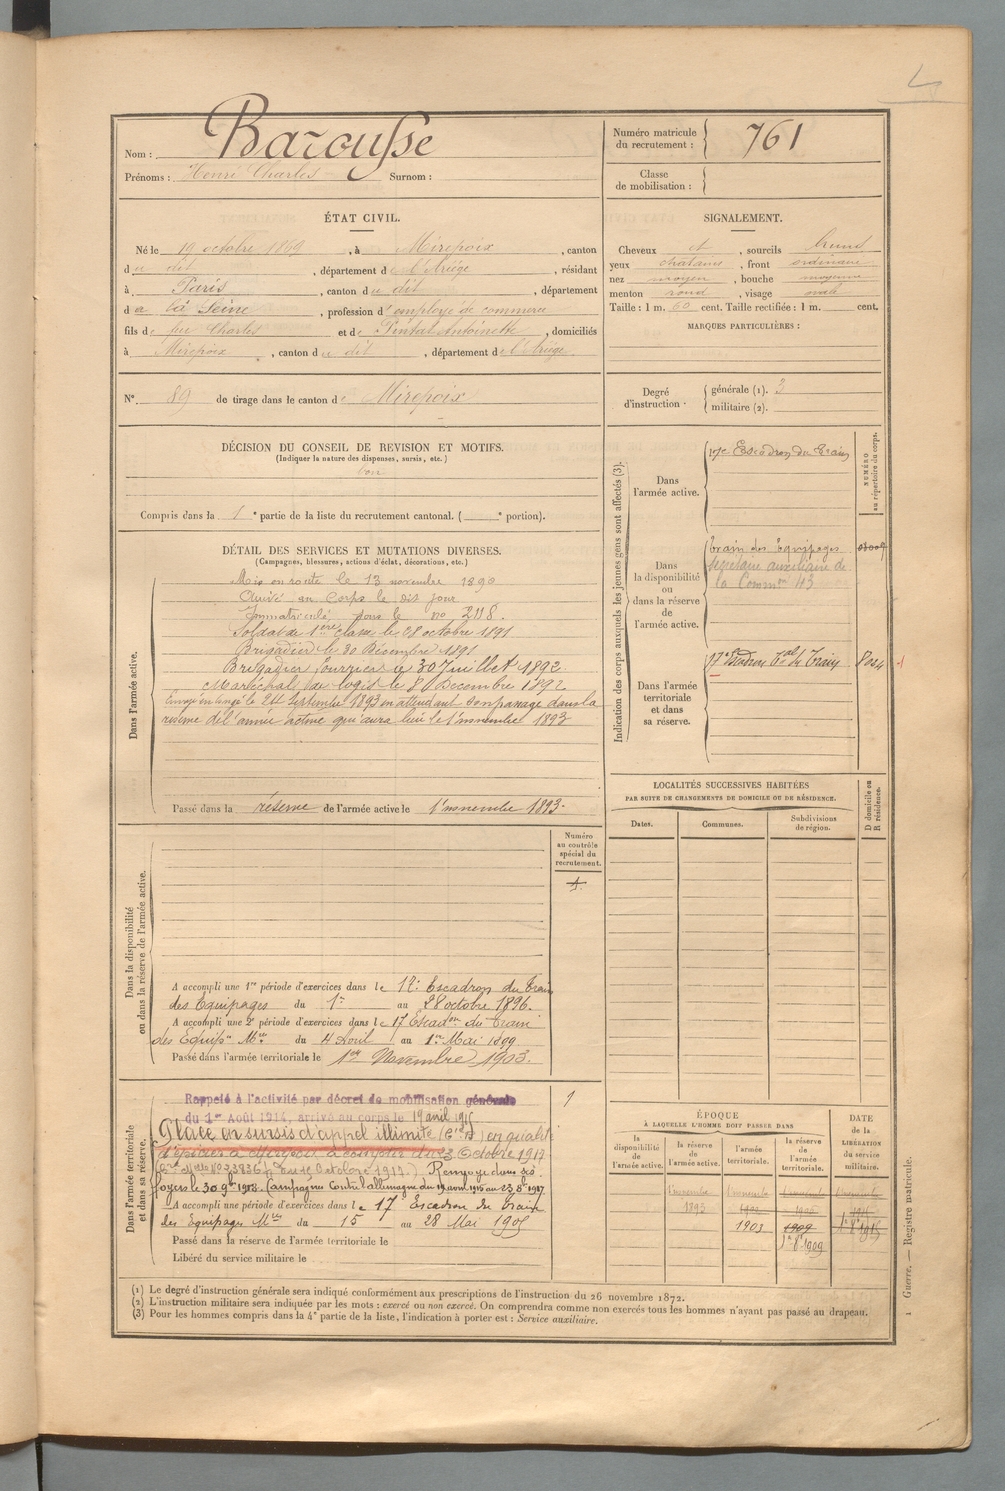 Nom : Barousse
Prénoms : Henri Charles Surnom :
Numéro matricule du recrutement : 761
Classe de mobilisation :
ÉTAT CIVIL.
Né le 19 octobre 1869, à Mirepoix, canton
du dit, département de l'Ariège, résidant
à Paris, canton du dit, département
de la Seine, profession d'employé de commerce
fils de feu Charles et de Pintat Antoinette, domiciliés
à Mirepoix, canton du dit, département de l'Ariège.
N° 89 de tirage dans le canton de Mirepoix
SIGNALEMENT.
Cheveux et, sourcils bruns
yeux chatains, front ordinaire
nez moyen, bouche moyenne
menton rond, visage ovale
Taille : 1 m. 60 cent. Taille rectifiée : 1 m. cent.
MARQUES PARTICULIÈRES :
Degré d'instruction générale (1). 3
militaire (2).
DÉCISION DU CONSEIL DE REVISION ET MOTIFS.
(Indiquer la nature des dispenses, sursis, etc.)
bon
Compris dans la 1e partie de la liste du recrutement cantonal. ( e portion).
DÉTAIL DES SERVICES ET MUTATIONS DIVERSES.
(Campagnes, blessures, actions d'éclat, décorations, etc.)
Dans l'armée active.
Mis en route le 13 novembre 1890
Arrivé au Corps le dit jour
Immatriculé sous le no 2118.
Soldat de 1ère classe le 28 octobre 1891
Brigadier le 30 Décembre 1891
Brigadier fourrier le 30 Juillet 1892
Maréchal des logis le 8 Décembre 1892
Envoyé en congé le 24 Septembre 1893 en attendant son passage dans la
réserve de l'armée active qui aura lieu le 1er novembre 1893
Passé dans la réserve de l'armée active le 1er novembre 1893
Indication des corps auxquels les jeunes gens sont affectés (3).
NUMÉRO au répertoire du corps.
Dans l'armée active.
17e Escadron du Train
Dans la disponibilité ou dans la réserve de l'armée active.
Train des Equipages
Secrétaire auxiliaire de
la Common 43
Dans l'armée territoriale et dans sa réserve.
17e Escadron Tal du Train
LOCALITÉS SUCCESSIVES HABITÉES
PAR SUITE DE CHANGEMENTS DE DOMICILE OU DE RÉSIDENCE.
Dates. Communes. Subdivisions de région. D domicile ou R résidence.
Dans la disponibilité ou dans la réserve de l'armée active.
Numéro au contrôle spécial du recrutement.
A accompli une 1re période d'exercices dans le 17e Escadron du Train
des Equipages du 1er au 28 octobre 1896.
A accompli une 2e période d'exercices dans le 17 Escadon du Train
des Equips Mres du 4 Avril au 1er Mai 1899
Passé dans l'armée territoriale le 1er Novembre 1903.
Dans l'armée territoriale et dans sa réserve.
1
Rappelé à l'activité par décret de mobilisation générale
du 1er Août 1914, arrivé au corps le 19 avril 1915
Placé en sursis d'appel illimité en qualité
d'épicier à Mirepoix à compter du 23 Octobre 1917
Renvoyé dans ses
foyers le 30 9bre 1918. Campagne Contre l'allemagne du 19 avril 1915 au 23 8bre 1917
A accompli une période d'exercices dans le 17 Escadron du Train
des Equipages Mres du 15 au 28 Mai 1905
Passé dans la réserve de l'armée territoriale le
Libéré du service militaire le
ÉPOQUE
À LAQUELLE L'HOMME DOIT PASSER DANS
la disponibilité de l'armée active.
la réserve de l'armée active.
l'armée territoriale.
la réserve de l'armée territoriale.
DATE de la LIBÉRATION du service militaire.
1 novembre 1893
1903
1909
1er 8bre 1909
1er 8bre 1915
(1) Le degré d'instruction générale sera indiqué conformément aux prescriptions de l'instruction du 26 novembre 1872.
(2) L'instruction militaire sera indiquée par les mots : exercé ou non exercé. On comprendra comme non exercés tous les hommes n'ayant pas passé au drapeau.
(3) Pour les hommes compris dans la 4e partie de la liste, l'indication à porter est : Service auxiliaire.
1 Guerre. — Registre matricule.